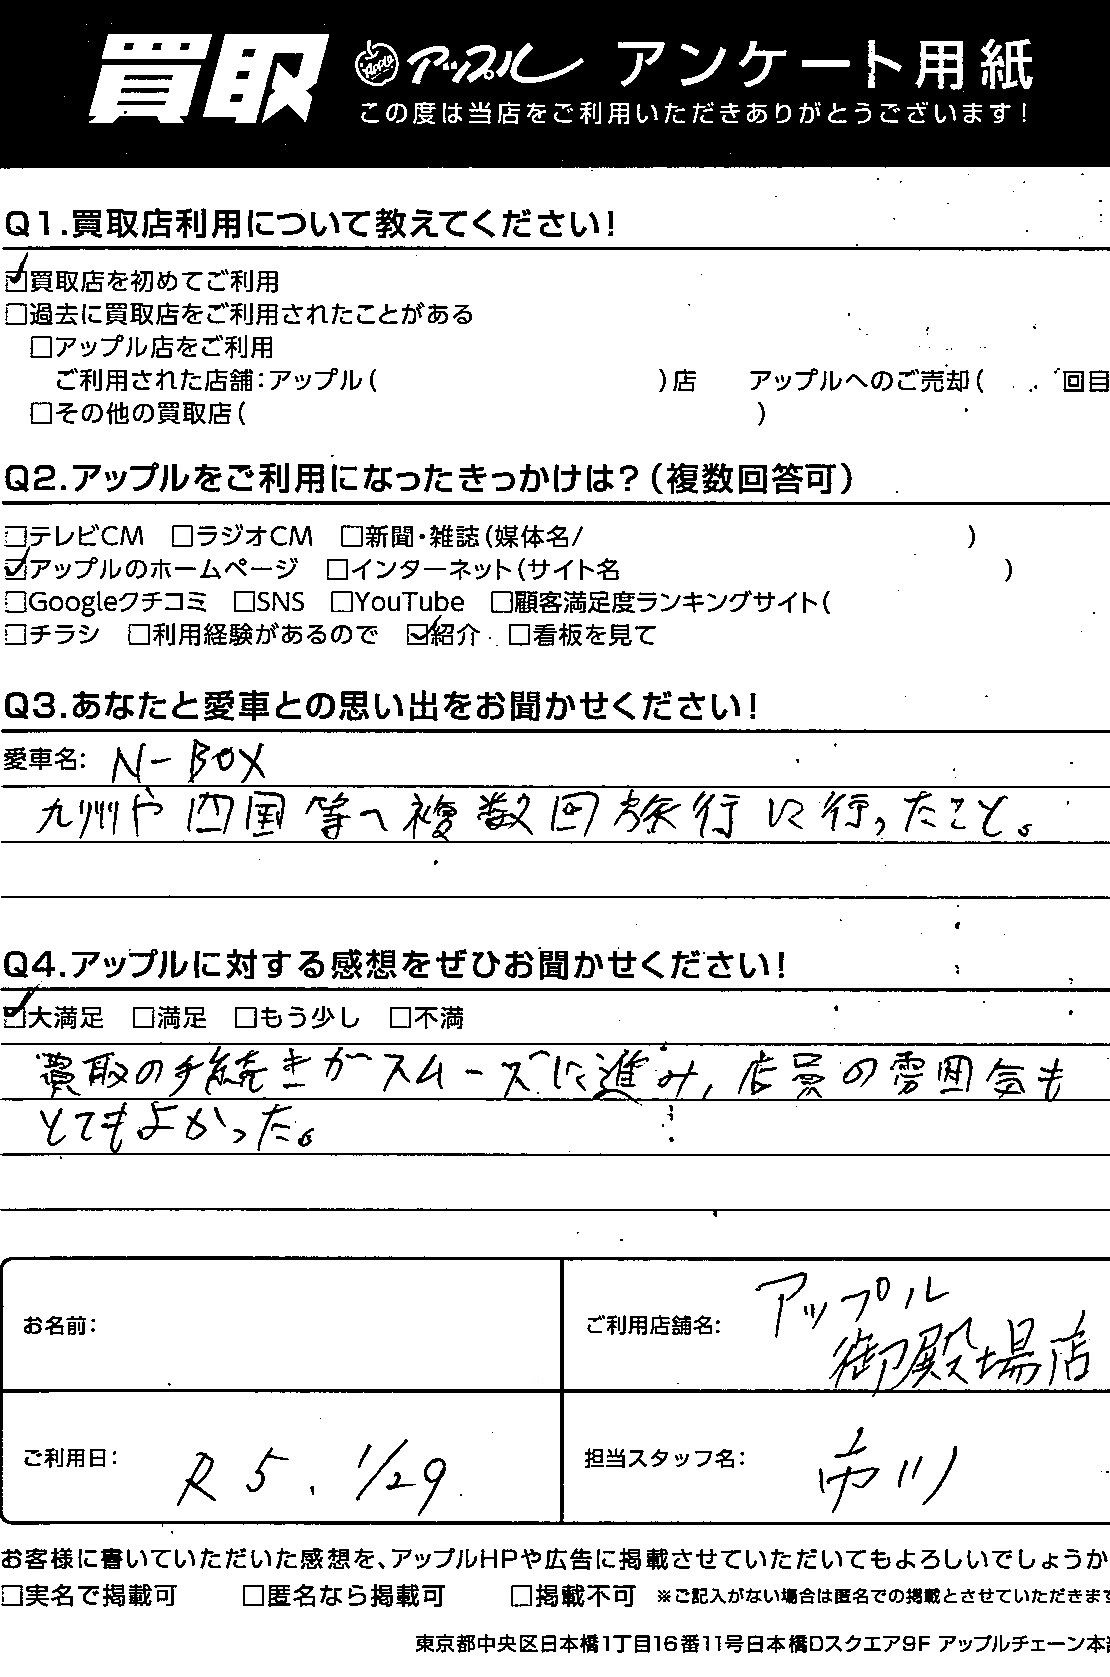 買取 Apple アップル アンケート用紙
この度は当店をご利用いただきありがとうございます!
Q1.買取店利用について教えてください!
☑買取店を初めてご利用
□過去に買取店をご利用されたことがある
□アップル店をご利用
ご利用された店舗:アップル( )店 アップルへのご売却( 回目
□その他の買取店( )
Q2.アップルをご利用になったきっかけは?(複数回答可)
□テレビCM □ラジオCM □新聞・雑誌(媒体名/ )
☑アップルのホームページ □インターネット(サイト名 )
□Googleクチコミ □SNS □YouTube □顧客満足度ランキングサイト(
□チラシ □利用経験があるので ☑紹介 □看板を見て
Q3.あなたと愛車との思い出をお聞かせください!
愛車名: N-BOX
九州や四国等へ複数回旅行に行ったこと。
Q4.アップルに対する感想をぜひお聞かせください!
☑大満足 □満足 □もう少し □不満
買取の手続きがスムーズに進み、店員の雰囲気も
とてもよかった。
お名前:
ご利用店舗名: アップル
御殿場店
ご利用日: R5. 1/29
担当スタッフ名: 市川
お客様に書いていただいた感想を、アップルHPや広告に掲載させていただいてもよろしいでしょうか
□実名で掲載可 □匿名なら掲載可 □掲載不可 ※ご記入がない場合は匿名での掲載とさせていただきます
東京都中央区日本橋1丁目16番11号日本橋Dスクエア9F アップルチェーン本部